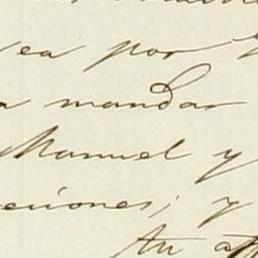 ea por
a mandar
Manuel y
ciones; y